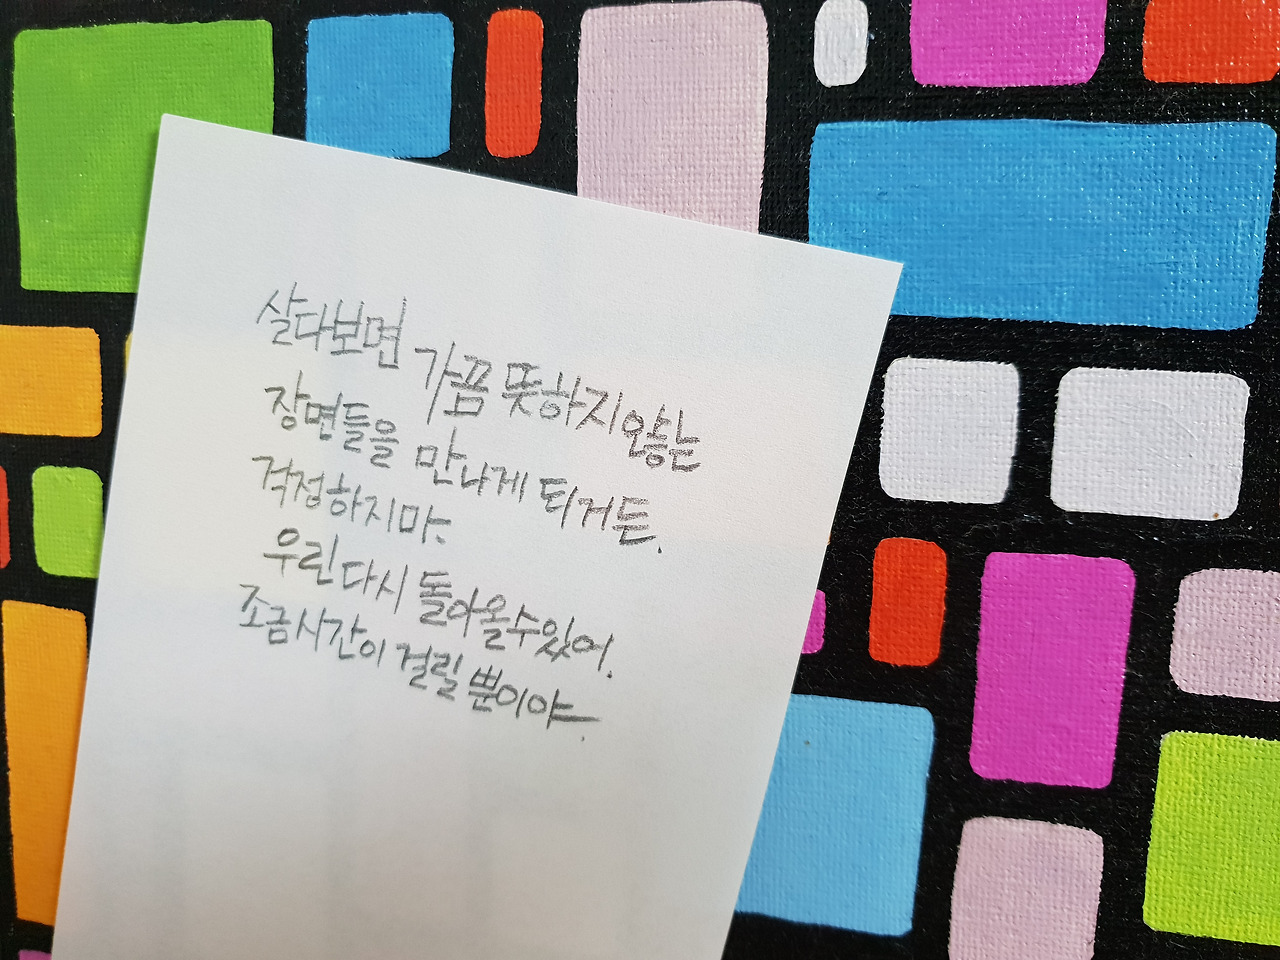 살다보면 가끔 뜻하지않는
장면들을 만나게 되거든.
걱정하지마.
우린 다시 돌아올수있어.
조금 시간이 걸릴 뿐이야.